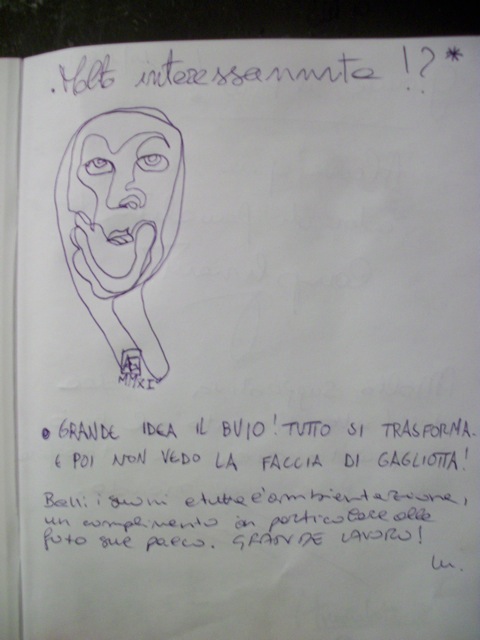 .Molto interessannnte !?*
MMXI
• GRANDE IDEA IL BUIO! TUTTO SI TRASFORMA.
E POI NON VEDO LA FACCIA DI GAGLIOTTA!
Belli i suoni e tutta l'ambientazione,
un complimento in particolare alle
foto sul palco. GRANDE LAVORO!